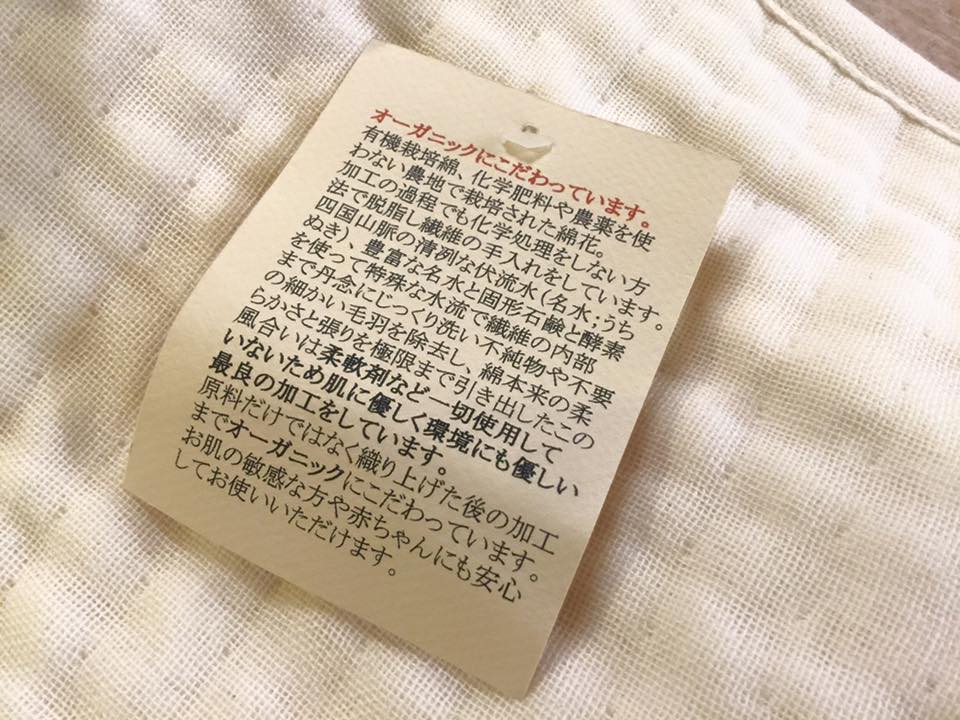 オーガニックにこだわっています。
有機栽培綿、化学肥料や農薬を使
わない農地で栽培された綿花。
加工の過程でも化学処理をしない方
法で脱脂し繊維の手入れをしています。
四国山脈の清冽な伏流水(名水;うち
ぬき)、豊富な名水と固形石鹸と酵素
を使って特殊な水流で繊維の内部
まで丹念にじっくり洗い不純物や不要
の細かい毛羽を除去し、綿本来の柔
らかさと張りを極限まで引き出したこの
風合いは柔軟剤など一切使用して
いないため肌に優しく環境にも優しい
最良の加工をしています。
原料だけではなく織り上げた後の加工
までオーガニックにこだわっています。
お肌の敏感な方や赤ちゃんにも安心
してお使いいただけます。